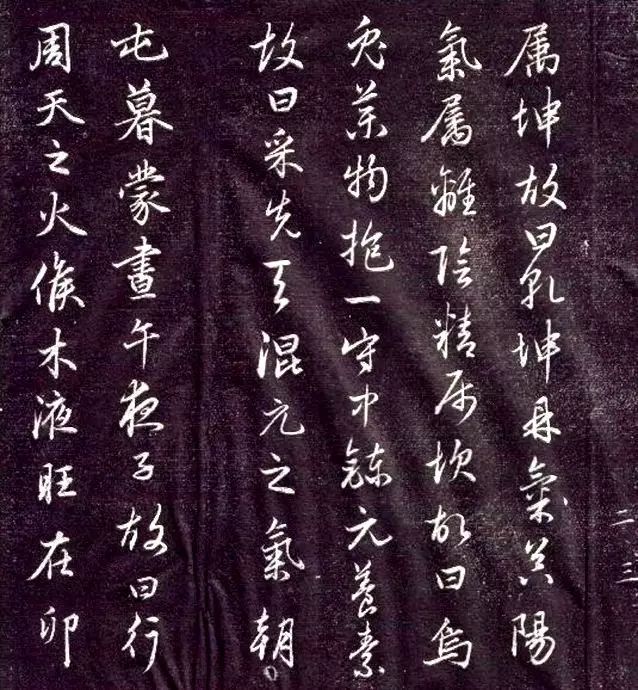 二三
属坤故曰乾坤鼎氣其陽
氣属離陰精属坎故曰烏
兔藥物抱一守中鍊元養素
故曰采先天混元之氣朝
屯暮蒙晝午夜子故曰行
周天之火候木液旺在卯